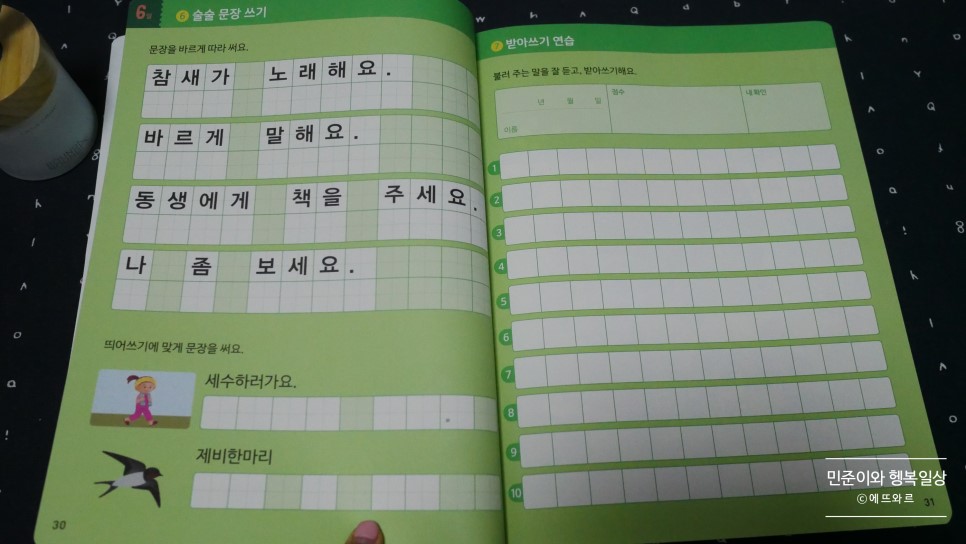 6장
6 술술 문장 쓰기
문장을 바르게 따라 써요.
참새가 노래해요.
바르게 말해요.
동생에게 책을 주세요.
나 좀 보세요.
띄어쓰기에 맞게 문장을 써요.
세수하러가요.
.
제비한마리
30
7 받아쓰기 연습
불러 주는 말을 잘 듣고, 받아쓰기해요.
년 월 일
이름
점수
내 확인
1
2
3
4
5
6
7
8
9
10
31
민준이와 행복일상
©에뜨와르